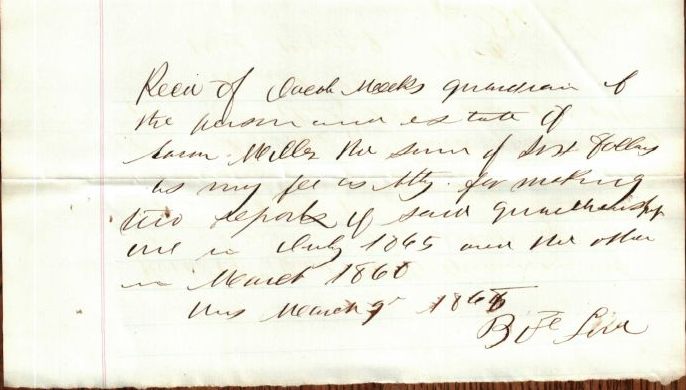 Recd of Jacob Meeks guardian of
the person and estate of
Miller the sum of Six Dollars
as my fee as Atty. for making
two reports of said guardianship
one in July 1865 and the other
in March 1866
this March 9th 1866
B